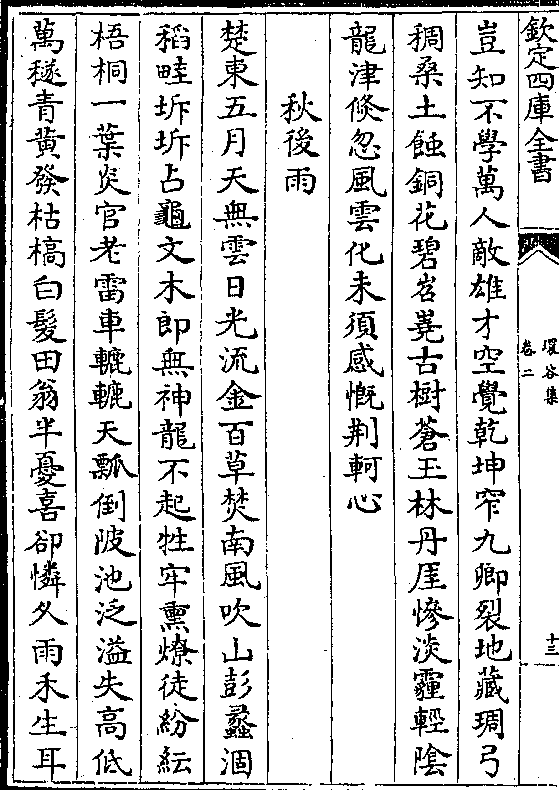 欽定四庫全書
環谷集
卷二
十三
豈知不學萬人敵雄才空覺乾坤窄九卿裂地藏琱弓
稠桑土蝕銅花碧岧嶤古樹蒼玉林丹厓慘淡霾輕陰
龍津倐忽風雲化未須感慨荆軻心
秋後雨
楚東五月天無雲日光流金百草焚南風吹山彭蠡涸
稻畦坼坼占龜文木郎無神龍不起牲牢熏燎徒紛紜
梧桐一葉炎官老雷車轆轆天瓢倒陂池泛溢失高低
萬穟青黄發枯槁白髮田翁半憂喜卻憐久雨禾生耳